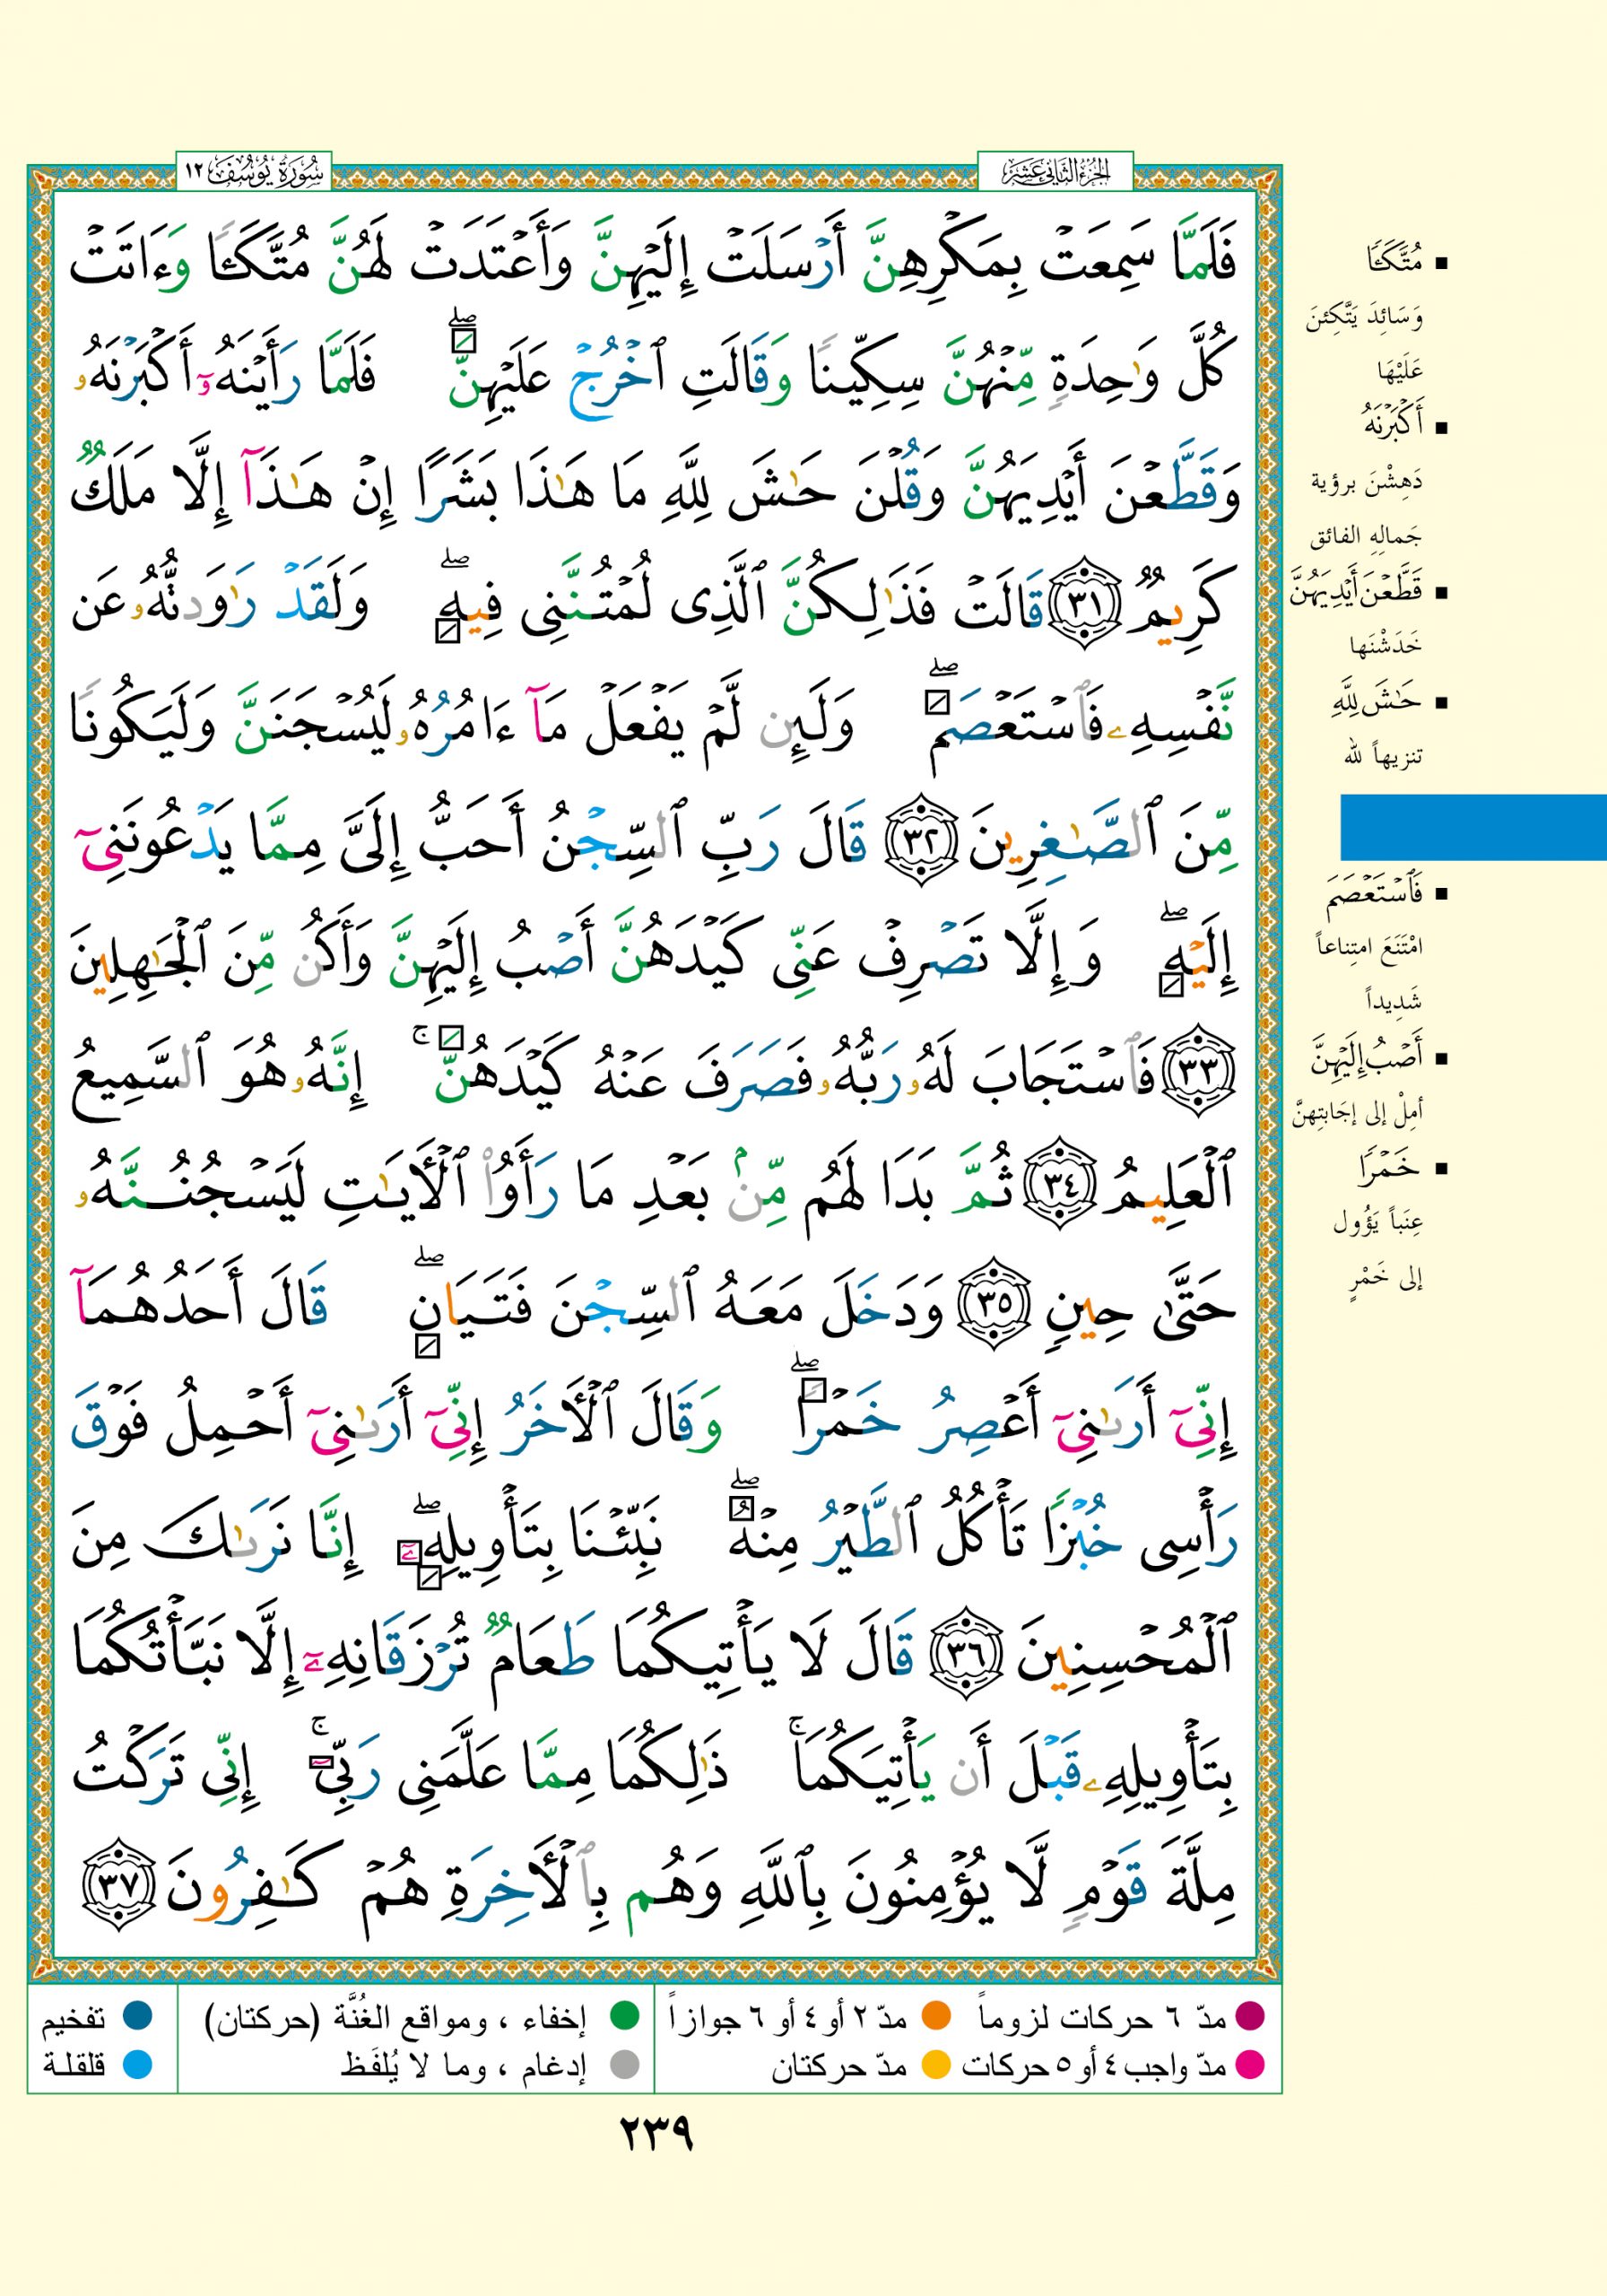 الجزء الثاني عشر
سُورَةُ يُوسُفَ ١٢
فَلَمَّا سَمِعَتْ بِمَكْرِهِنَّ أَرْسَلَتْ إِلَيْهِنَّ وَأَعْتَدَتْ لَهُنَّ مُتَّكَـًٔا وَءَاتَتْ
كُلَّ وَٰحِدَةٍ مِّنْهُنَّ سِكِّينًا وَقَالَتِ ٱخْرُجْ عَلَيْهِنَّ ۖ فَلَمَّا رَأَيْنَهُۥٓ أَكْبَرْنَهُۥ
وَقَطَّعْنَ أَيْدِيَهُنَّ وَقُلْنَ حَٰشَ لِلَّهِ مَا هَٰذَا بَشَرًا إِنْ هَٰذَآ إِلَّا مَلَكٌ
كَرِيمٌ ٣١ قَالَتْ فَذَٰلِكُنَّ ٱلَّذِى لُمْتُنَّنِى فِيهِ ۖ وَلَقَدْ رَٰوَدتُّهُۥ عَن
نَّفْسِهِۦ فَٱسْتَعْصَمَ ۖ وَلَئِن لَّمْ يَفْعَلْ مَآ ءَامُرُهُۥ لَيُسْجَنَنَّ وَلَيَكُونًا
مِّنَ ٱلصَّٰغِرِينَ ٣٢ قَالَ رَبِّ ٱلسِّجْنُ أَحَبُّ إِلَىَّ مِمَّا يَدْعُونَنِىٓ
إِلَيْهِ ۖ وَإِلَّا تَصْرِفْ عَنِّى كَيْدَهُنَّ أَصْبُ إِلَيْهِنَّ وَأَكُن مِّنَ ٱلْجَٰهِلِينَ
٣٣ فَٱسْتَجَابَ لَهُۥ رَبُّهُۥ فَصَرَفَ عَنْهُ كَيْدَهُنَّ ۚ إِنَّهُۥ هُوَ ٱلسَّمِيعُ
ٱلْعَلِيمُ ٣٤ ثُمَّ بَدَا لَهُم مِّنۢ بَعْدِ مَا رَأَوُا۟ ٱلْأَيَٰتِ لَيَسْجُنُنَّهُۥ
حَتَّىٰ حِينٍ ٣٥ وَدَخَلَ مَعَهُ ٱلسِّجْنَ فَتَيَانِ ۖ قَالَ أَحَدُهُمَآ
إِنِّىٓ أَرَىٰنِىٓ أَعْصِرُ خَمْرًا ۖ وَقَالَ ٱلْأَخَرُ إِنِّىٓ أَرَىٰنِىٓ أَحْمِلُ فَوْقَ
رَأْسِى خُبْزًا تَأْكُلُ ٱلطَّيْرُ مِنْهُ ۖ نَبِّئْنَا بِتَأْوِيلِهِۦٓ ۖ إِنَّا نَرَىٰكَ مِنَ
ٱلْمُحْسِنِينَ ٣٦ قَالَ لَا يَأْتِيكُمَا طَعَامٌ تُرْزَقَانِهِۦٓ إِلَّا نَبَّأْتُكُمَا
بِتَأْوِيلِهِۦ قَبْلَ أَن يَأْتِيَكُمَا ۚ ذَٰلِكُمَا مِمَّا عَلَّمَنِى رَبِّىٓ ۚ إِنِّى تَرَكْتُ
مِلَّةَ قَوْمٍ لَّا يُؤْمِنُونَ بِٱللَّهِ وَهُم بِٱلْأَخِرَةِ هُمْ كَٰفِرُونَ ٣٧
■ مُتَّكَـًٔا
وَسَائِدَ يَتَّكِئنَ
عَلَيْهَا
■ أَكْبَرْنَهُ
دَهِشْنَ برؤية
جَمالِهِ الفائق
■ قَطَّعْنَ أَيْدِيَهُنَّ
خَدَشْنَها
■ حَٰشَ لِلَّهِ
تنزيهاً لله
■ فَٱسْتَعْصَمَ
امْتَنَعَ امتِناعاً
شَدِيداً
■ أَصْبُ إِلَيْهِنَّ
أمِلْ إلى إجَابتِهنَّ
■ خَمْرًا
عِنَباً يَؤُول
إلى خَمْرٍ
مدّ ٦ حركات لزوماً
مدّ ٢ أو ٤ أو ٦ جوازاً
إخفاء ، ومواقع الغُنَّة (حركتان)
تفخيم
مدّ واجب ٤ أو ٥ حركات
مدّ حركتان
إدغام ، وما لا يُلفَظ
قلقلة
٢٣٩